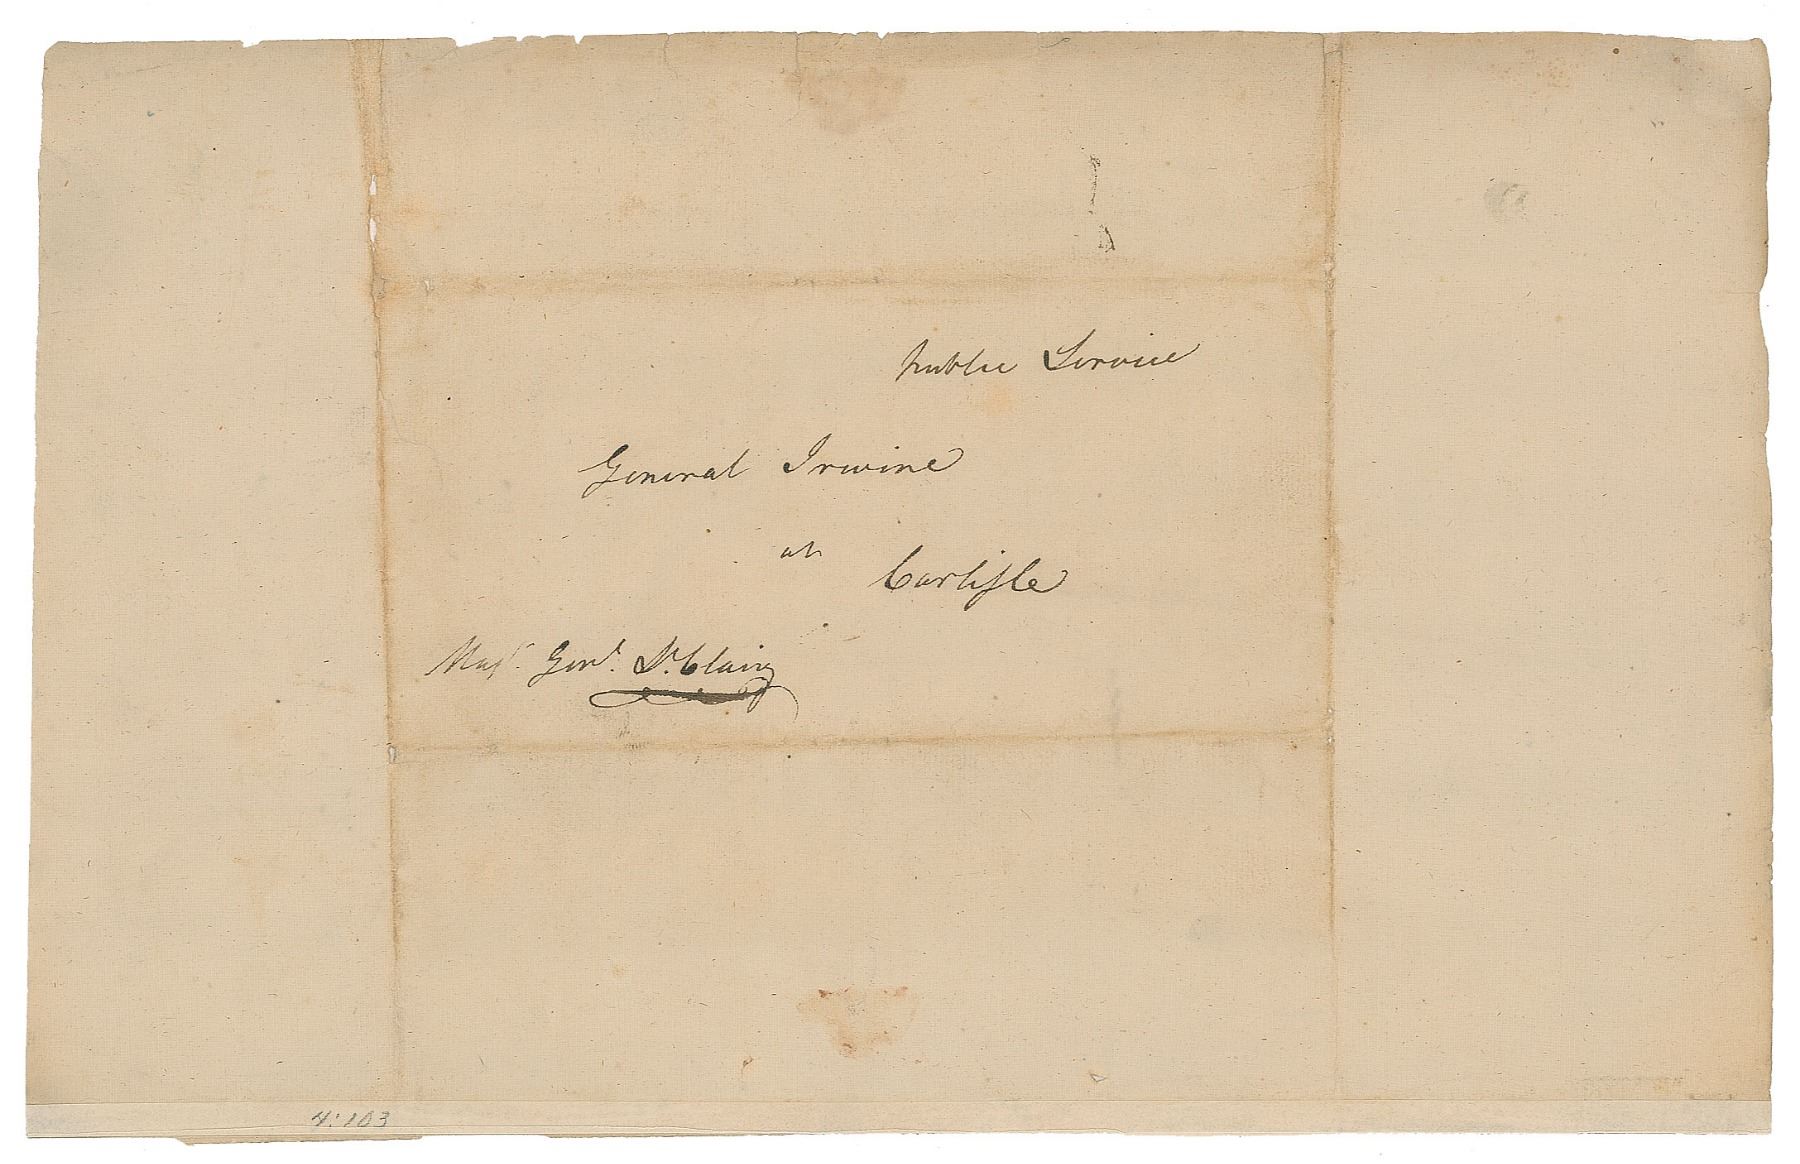 Public Service
General Irwine
at
Carlisle
Majr. Genl. St. Clair
4:103